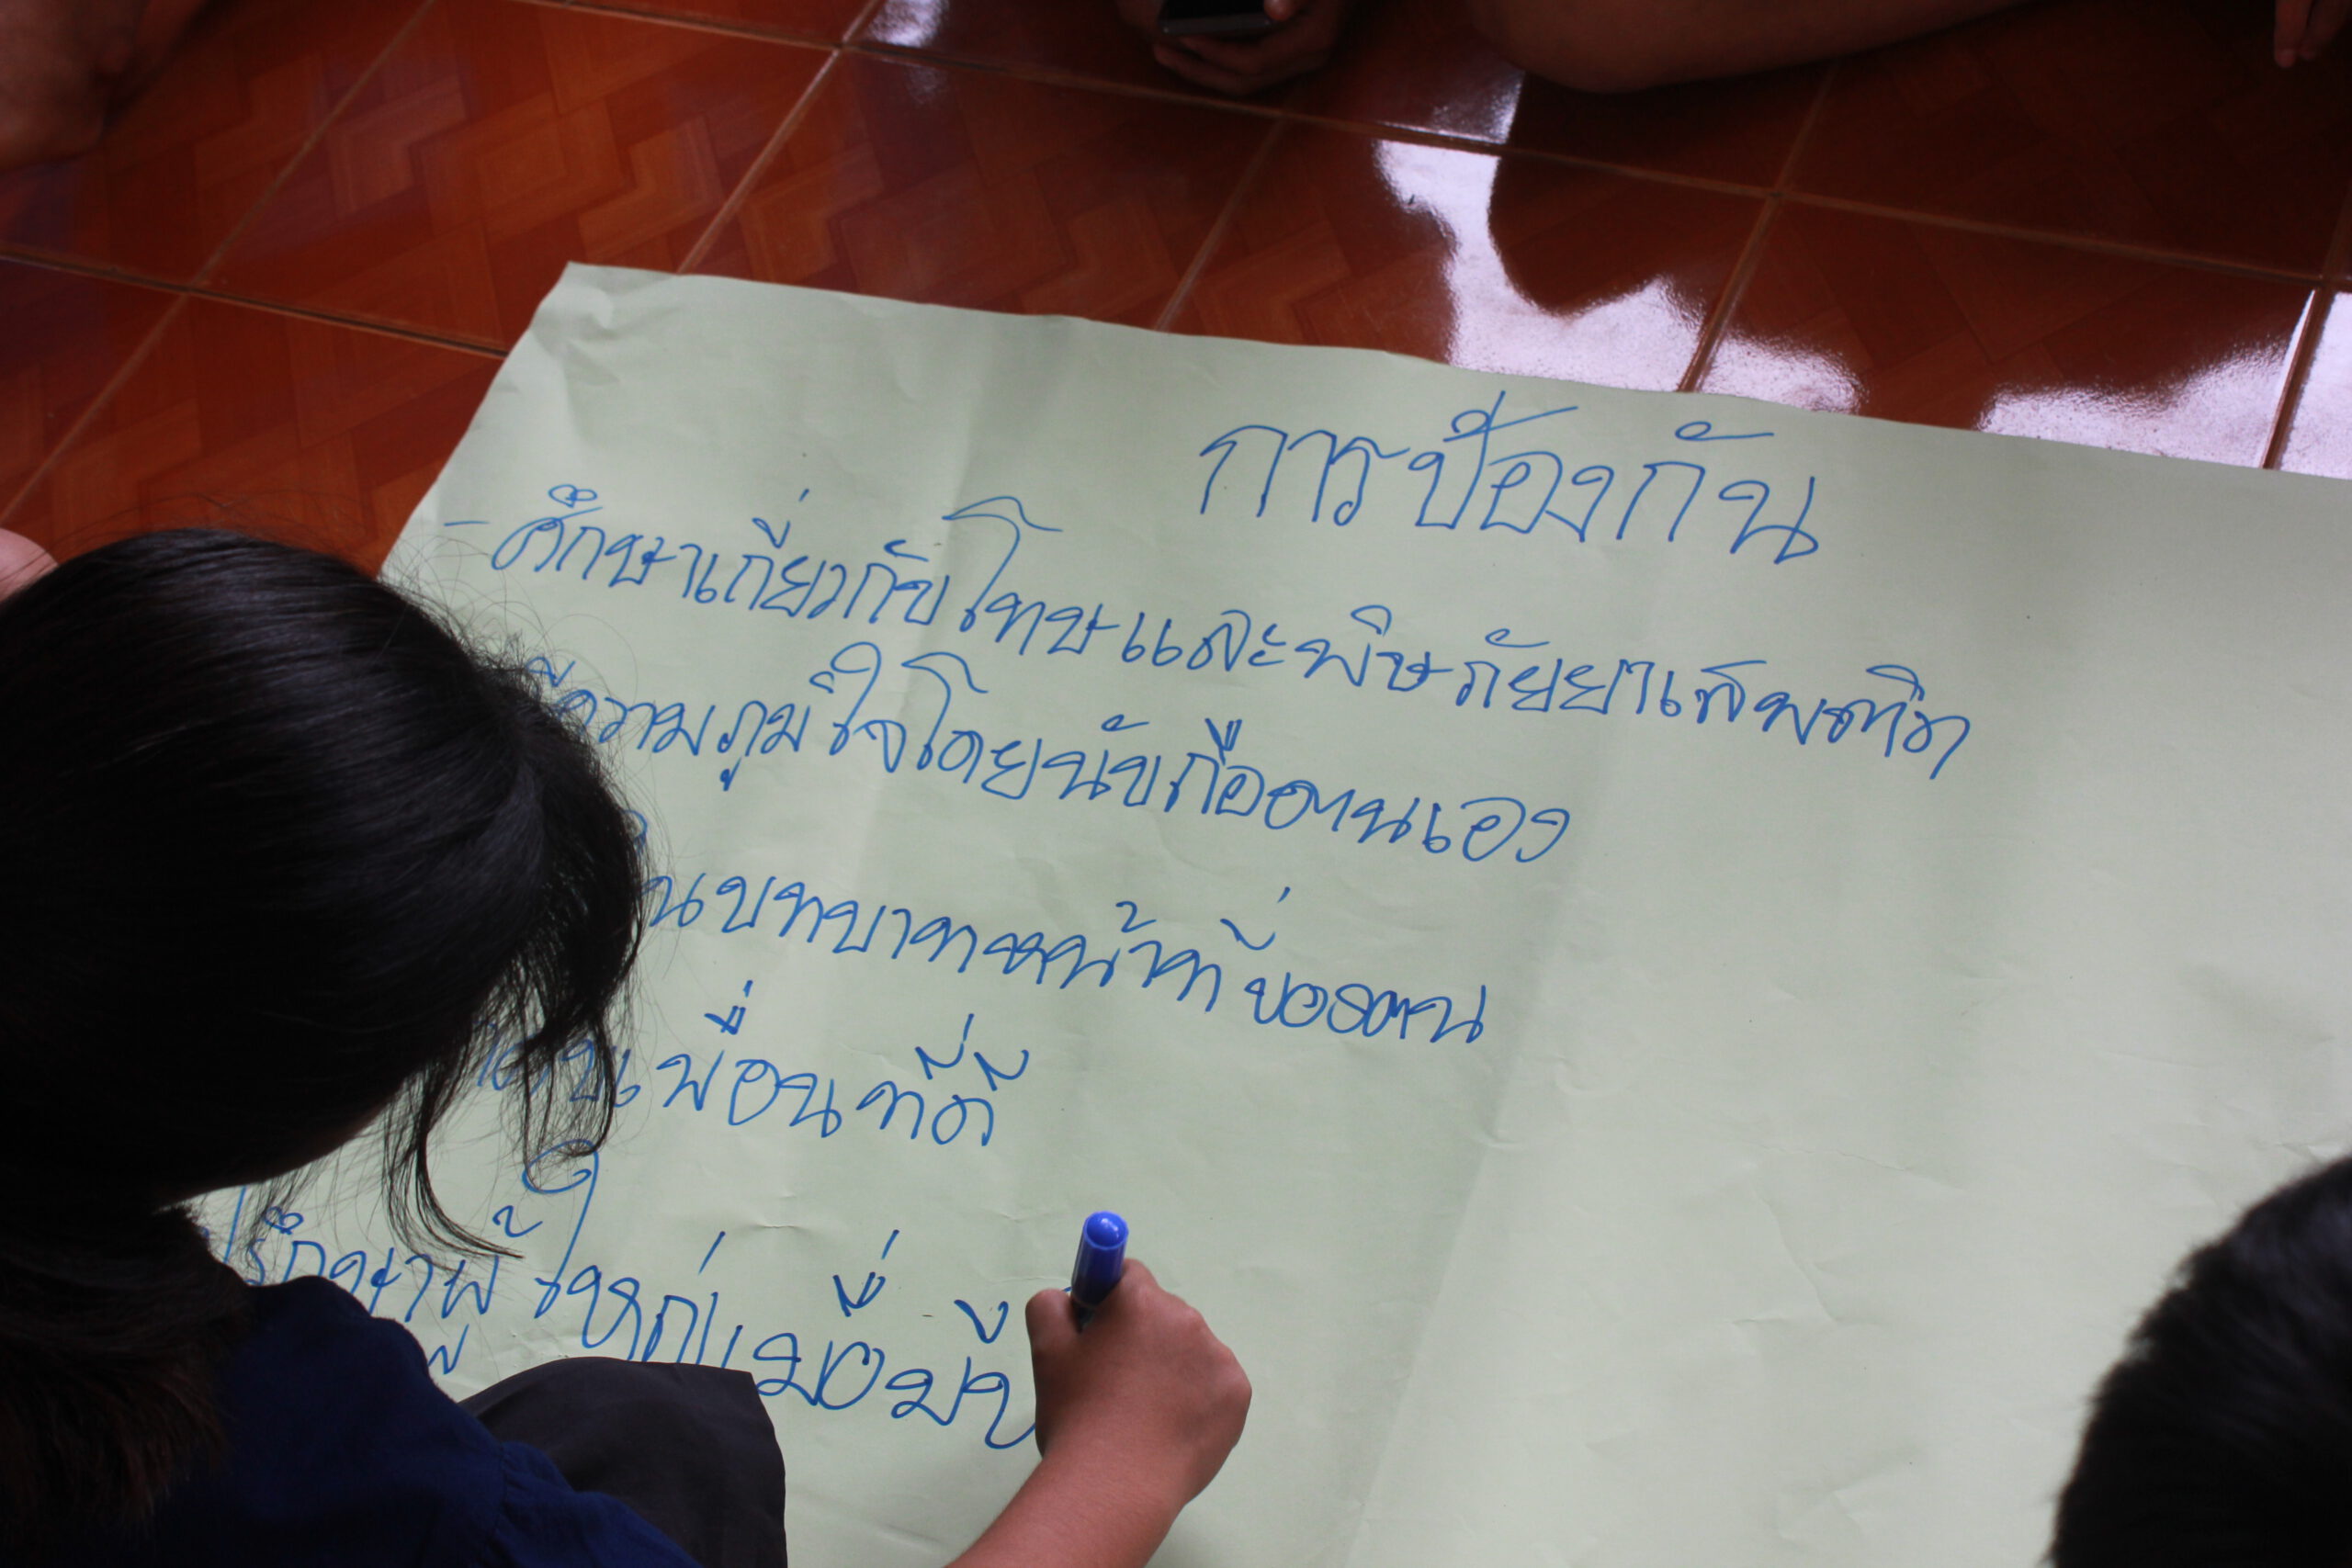 การป้องกัน
- ศึกษาเกี่ยวกับโทษและพิษภัยยาเสพติด
ความภูมิใจโดยนับถือตนเอง
บทบาทหน้าที่ของตน
เพื่อนที่ดี
ปรึกษาผู้ใหญ่เมื่อมี